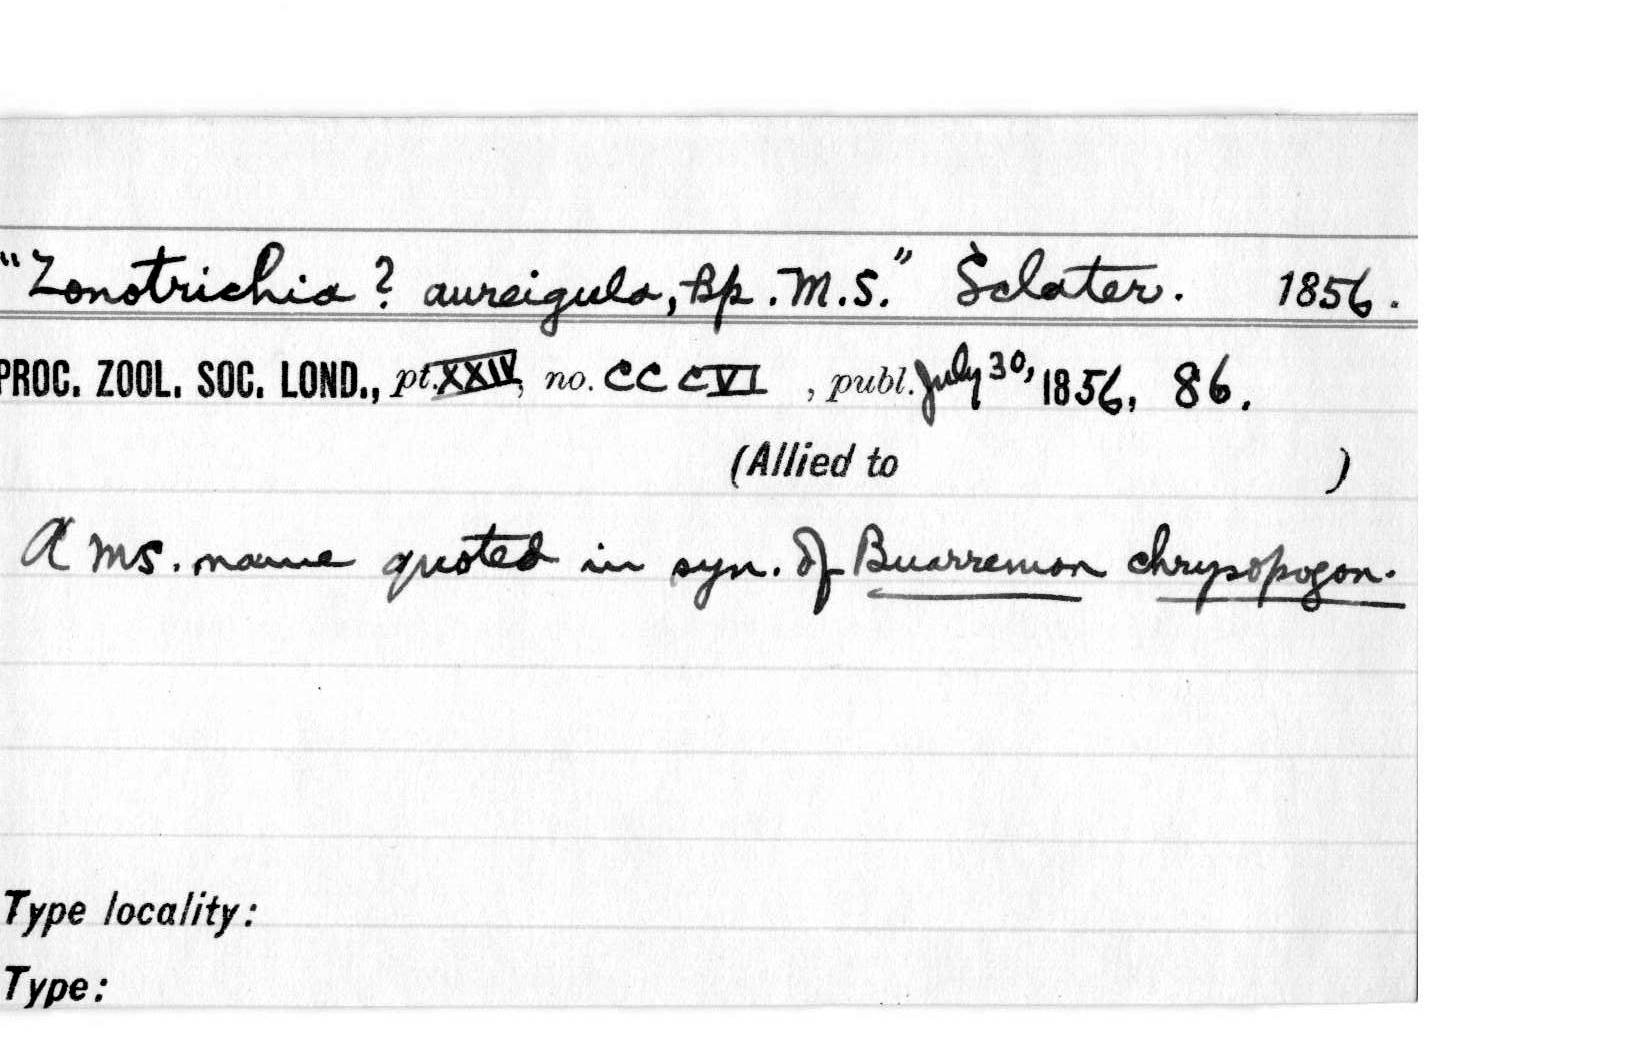 "Zonotrichia ? aureigula, Bp. M.S." Sclater. 1856.
PROC. ZOOL. SOC. LOND., pt. XXIV, no. CCCVI , publ. July 30, 1856, 86.
(Allied to )
A MS. name quoted in syn. of Buarremon chrysopogon.
Type locality:
Type: